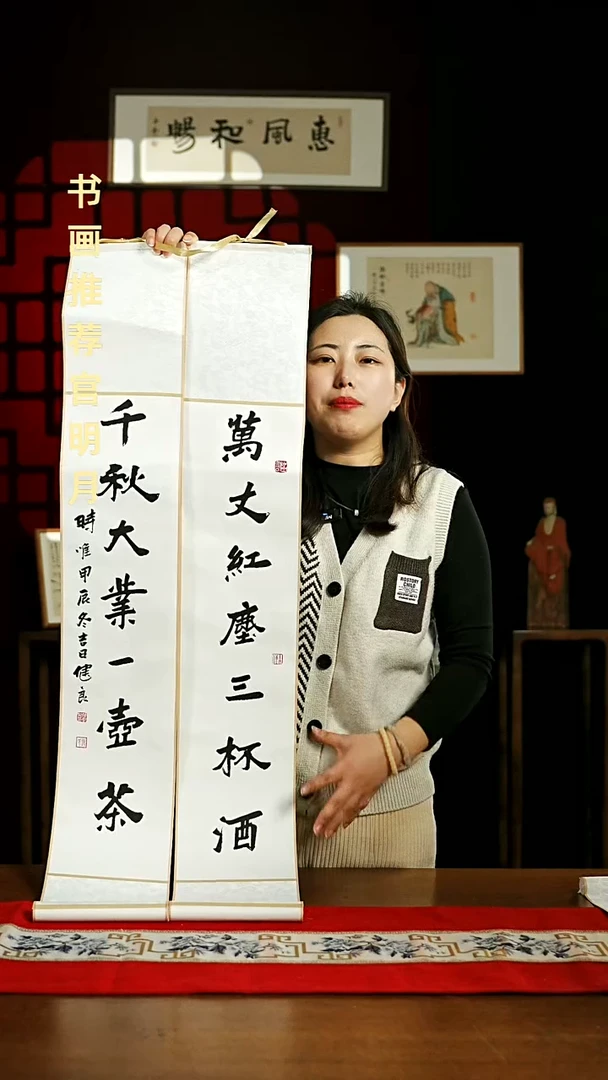 惠風和暢
书画推荐官明月
萬丈紅塵三杯酒
千秋大業一壺茶
時唯甲辰冬吉日健良
CHILD